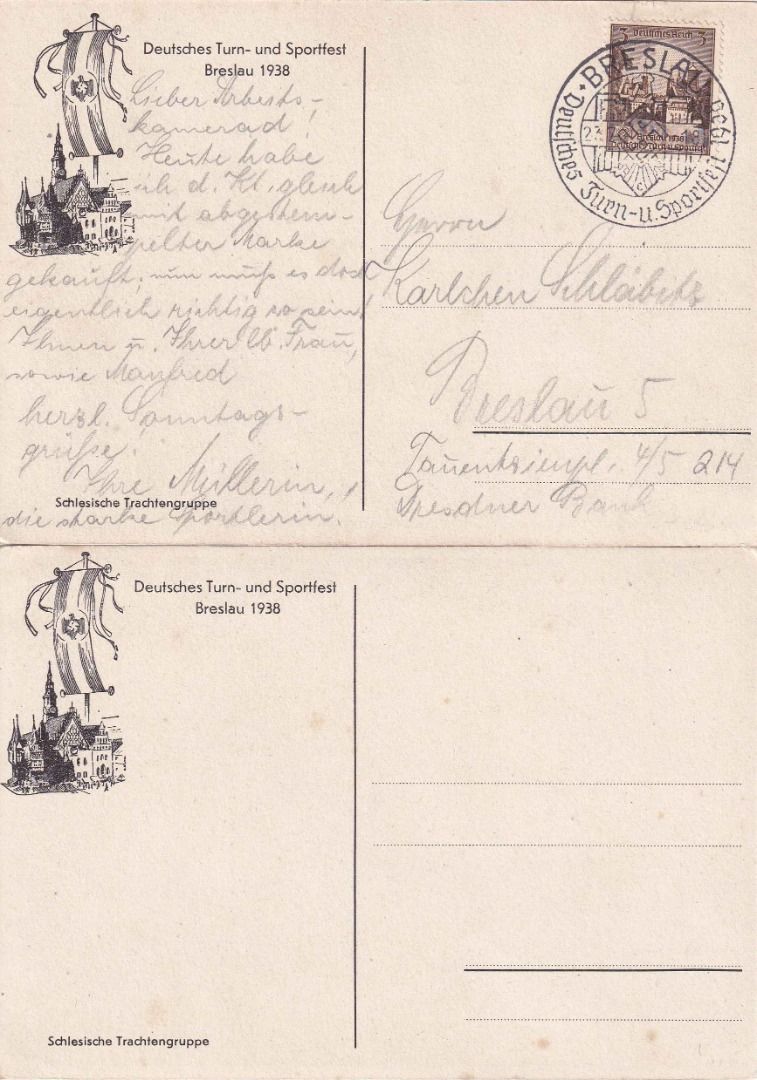 Deutsches Turn- und Sportfest
Breslau 1938
Lieber Arbeits-
kamerad!
Heute habe
ich d. Kt. gleich
mit abgestem-
pelter Marke
gekauft, nun muß es doch
eigentlich richtig so sein!
Ihnen u. Ihrer lb. Frau,
sowie Manfred
herzl. Sonntags-
grüße!
Ihre Müllerin,
die starke Sportlerin.
Schlesische Trachtengruppe
3 Deutsches Reich 3
Breslau 1938
BRESLAU
Deutsches Turn- u. Sportfest 1938
Herrn
Karlchen Schläbitz
Breslau 5
Tauentzienpl. 4/5 214
Dresdner Bank
Deutsches Turn- und Sportfest
Breslau 1938
Schlesische Trachtengruppe